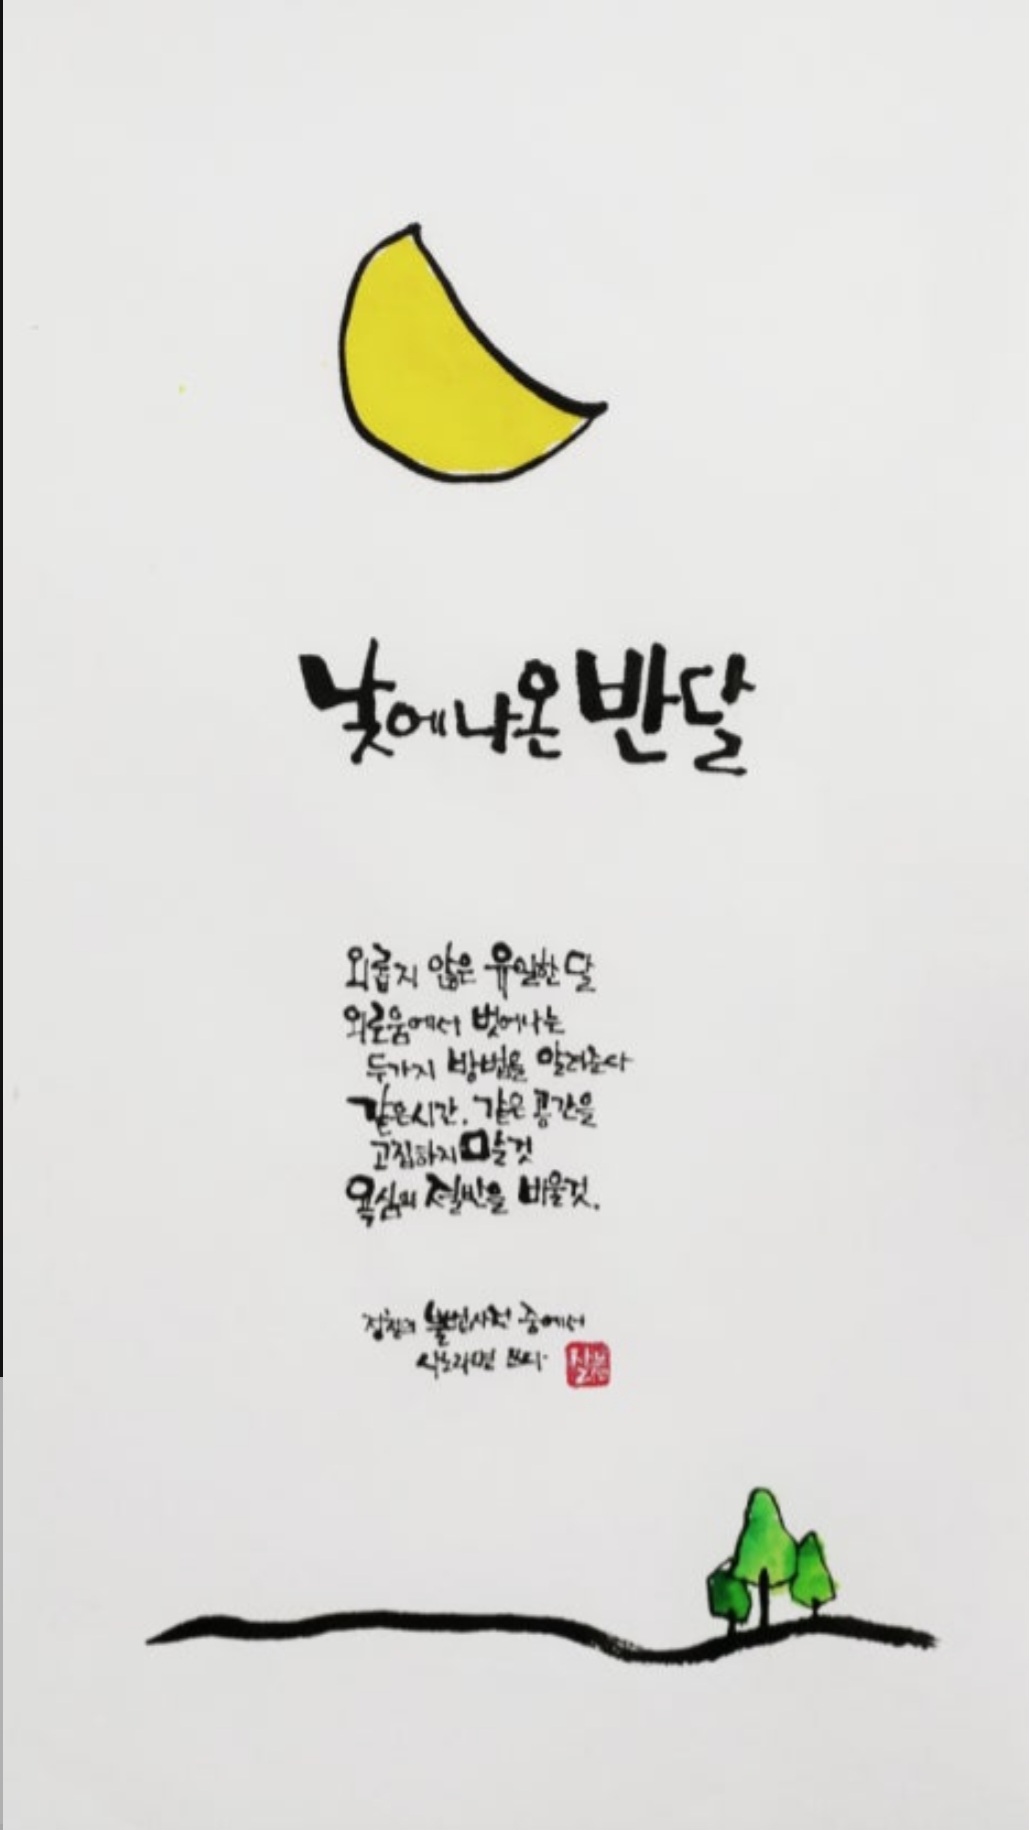 낮에 나온 반달
외롭지 않은 유일한 달
외로움에서 벗어나는
두가지 방법을 알려준다
같은시간, 같은 공간을
고집하지 말 것
욕심의 절반을 비울것.
정철의 불법사전 중에서
쓰다.